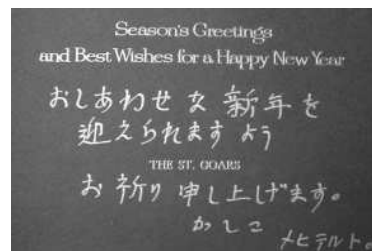 Season's Greetings
and Best Wishes for a Happy New Year
おしあわせ な 新年 を
迎えられます よう
THE ST. GOARS
お 祈り 申し上げます。
かしこ
メヒテルト。